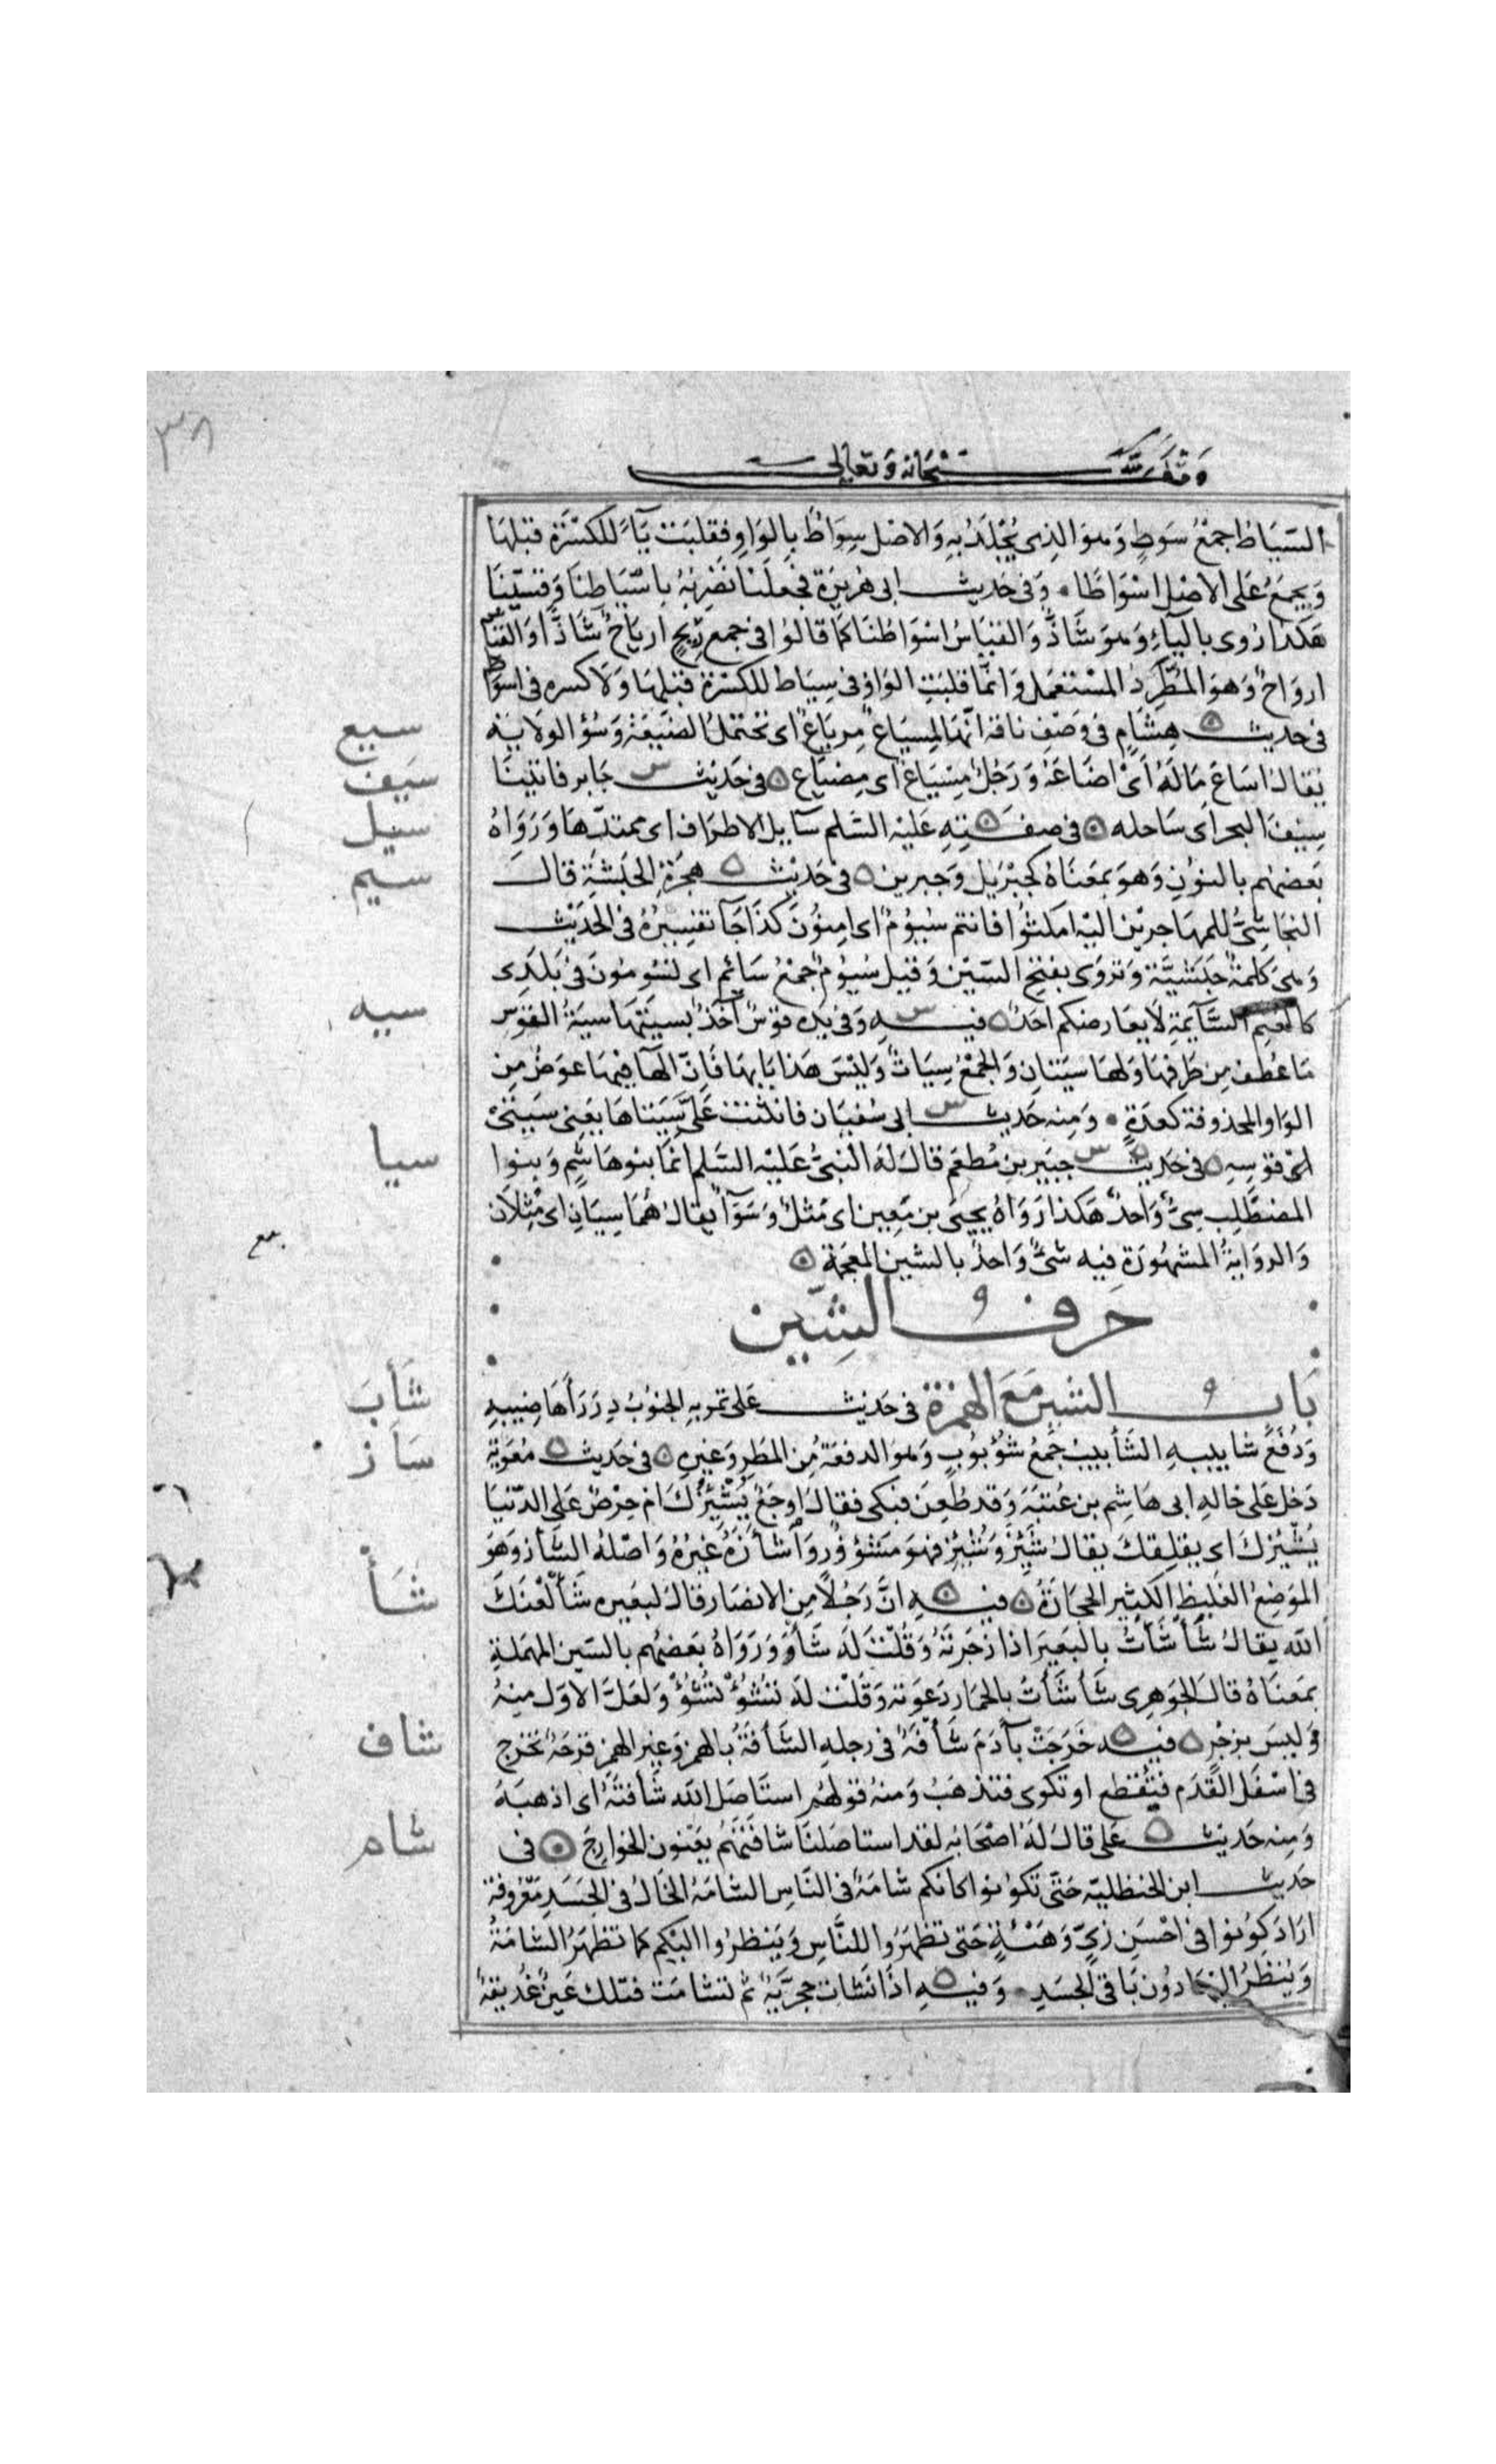 ٣٨
وقف لله سبحانه وتعالى
السّيَاطُ جمْعُ سَوطٍ وَهوَ الذِى يُجْلَدُ بِهِ وَالاصْل سِوَاطٌ بالوَاوِ فقلبَت يَآءً للكسْرَة قبْلهَا
وَيجمَعُ عَلى الاصْل اسْوَاطًا وَفى حَديث ابى هُريرَة فجعَلنا نَضْرِبُهُ باسْيَاطِنَا وَقِسِيّنَا
هكذا رُوى باليآءِ وَهوَ شَاذٌ وَالقيَاسُ اسْوَاطُنَا كمَا قالوُا فى جمع رِيحٍ ارياحٌ شَاذًّا وَالقيَاسُ
ارواحٌ وَهوَ المُطَّرِدُ المسْتعْمَل وَانّما قلبَتِ الوَاوُ فى سِيَاط للكسْرَة قبْلهَا وَلا كسره فى اسوَاط
سيع
فى حديث هِشَامٍ فى وَصْفِ ناقة انّهَا لمِسيَاعٌ مِربَاعٌ اى تحْتملُ الضّيعَةَ وَسُوْ الولاَيَة
سَيف
يُقالُ اسَاعَ مَالَهُ اىْ اضَاعَهُ وَرَجُلٌ مِسْيَاعٌ اى مِضْيَاع فى حَدِيث جَابر فاتيْنا
سيل
سِيْفَ البحر اى سَاحله فى صِفَتِهِ عَليْهِ السّلم سَآيل الاطرَاف اى ممتدّهَا وَرَوَاهُ
سيم
بَعضهُم بالنوُن وَهوَ بمعَنَاهُ كجبْريْل وَجبرين فى حَدِيْث هِجرَةِ الحَبشَةِ قال
النجَاشىُّ للمهَاجرِيْن اليْه امكثُوا فانتم سُيوُمٌ اى امِنوُنَ كذَا جَآ تفسِيْرُهُ فى الحَديْث
وَهىَ كلمةٌ حَبَشيَّة وَتروَى بفتح السّيْن وَقيل سُيوُم جمْعُ سَائم اى تسُومُونَ فى بَلَدِى
سيه
كالغنمِ السَّآيِمةِ لاَ يعَارضكم احَدٌ فيهِ وَفى يدِه قوْسٌ آخذٌ بسيَتهَا سيَةُ القوْس
مَا عُطفَ مِن طرَفهَا وَلهَا سيَتانِ وَالجمْعُ سِيَاتٌ وَليْسَ هَذا بَابهَا فَانّ الهآ فيهَا عوَضٌ مِن
الوَاو المحذوفة كعدَةٍ وَمِنه حَديث ابى سُفيَان فانثنت عَلىَّ سِيَتاهَا يعَنى سيَتَىْ
سيا
اىْ قوْسِهِ فى حَديث جبَير بن مُطعِم قالَ لهُ النبىُّ عَليْه السّلم انّمَا بنوهَاشِم وَبنوا
المطّلِب سِىٌّ وَاحدٌ هَكذا رَوَاهُ يحيىَ بن مَعِين اى مَثلٌ وَسَوَآ يقالُ هُمَا سِيَانِ اى مِثلاَن
وَالروَايةُ المشهُورَة فيه شئٌ وَاحدٌ بالشين المعجَمة
حَرفُ الشِّين
شأب
بَابُ الشين مَعَ الهَمْزة فى حَديث عَلى تمريهِ الجَنوُبُ دِرَرَ أهَاضِيبِهِ
سَأز
وَدُفَعَ شابيبهِ الشَآبيب جَمْعُ شوُبوُبٍ وَهوَ الدفعَةُ مِن المَطرِ وَغيْرِهِ فى حَدِيث مُعَويَة
دَخل عَلى خالِهِ ابى هَاشِم بن عُتبَة وَقد طُعِن فبَكى فقالَ اوَجَعٌ يُشْئِزُكَ ام حِرْصٌ عَلى الدّنيَا
يُشئِزُكَ اى يقلِقكَ يقالُ شئِزَ وَشُئِزَ فهوَ مَشؤوُز وَأشأزَهُ غيْرُهُ وَاصْلهُ الشَأز وَهوَ
شأ
الموَضِعُ الغَليظ الكثيرُ الحِجَارَةُ فيهِ انَّ رَجُلاً مِن الانصَار قالَ لبعَيره شَأ لعَنكَ
الله يقالُ شَأشَأتُ بالبعَير اذا زَجَرتَهُ وَقُلتَ لهُ شَأ وَرَوَاهُ بعَضهُم بالسّين المهمَلةِ
بمعَنَاهُ قال الجَوهرى شَأشَأتُ بالحمَار دَعَوته وَقلت له تشُؤْ تشُؤْ وَلعَلَّ الاوّلَ منهُ
شاف
وَليسَ بزجْرٍ فيه خَرَجَتْ بآدَمَ شَأفَةٌ فى رجلهِ الشَأفَةُ بالهمز وَغيْرِ الهمز قرحَةٌ تخرج
فى اسْفَل القَدَم فَتُقطع او تكوى فتذهَبُ وَمنهُ قولهُم استَاصَل الله شَأفتَهُ اى اذهبَهُ
شام
وَمِنه حَديث عَلى قالَ لهُ اصْحَابُه لقد استاصَلنَا شَافَتَهُمْ يعَنون الخوارِجَ فى
حَديث ابن الحنظليّه حَتّى تكوُنوا كانكم شامَةٌ فى النّاسِ الشامَةُ الخَالُ فى الجَسَدِ مَعْروفة
ارَادَ كوُنوُا فى احْسَن زىٍّ وَهَيْئةٍ حَتى تظهَرُوا للنَّاسِ وَيَنظرُوا اليْكم كما تظهَرُ الشامَةُ
وَيُنظرُ اليهَا دوُن بَاقى الجسَدِ وَفيهِ اذا نَشات حجريَّةٌ ثم تشامَت فتلك عَيْنٌ غُديقةٌ